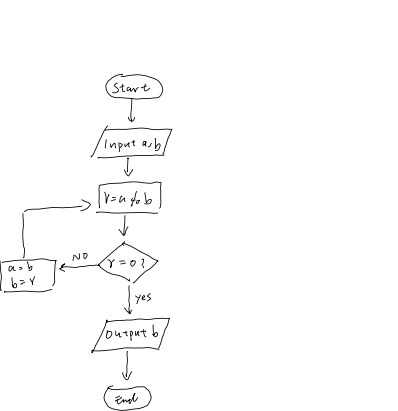 Start
Input a,b
r=a % b
r=0?
NO
a=b
b=r
yes
Output b
End